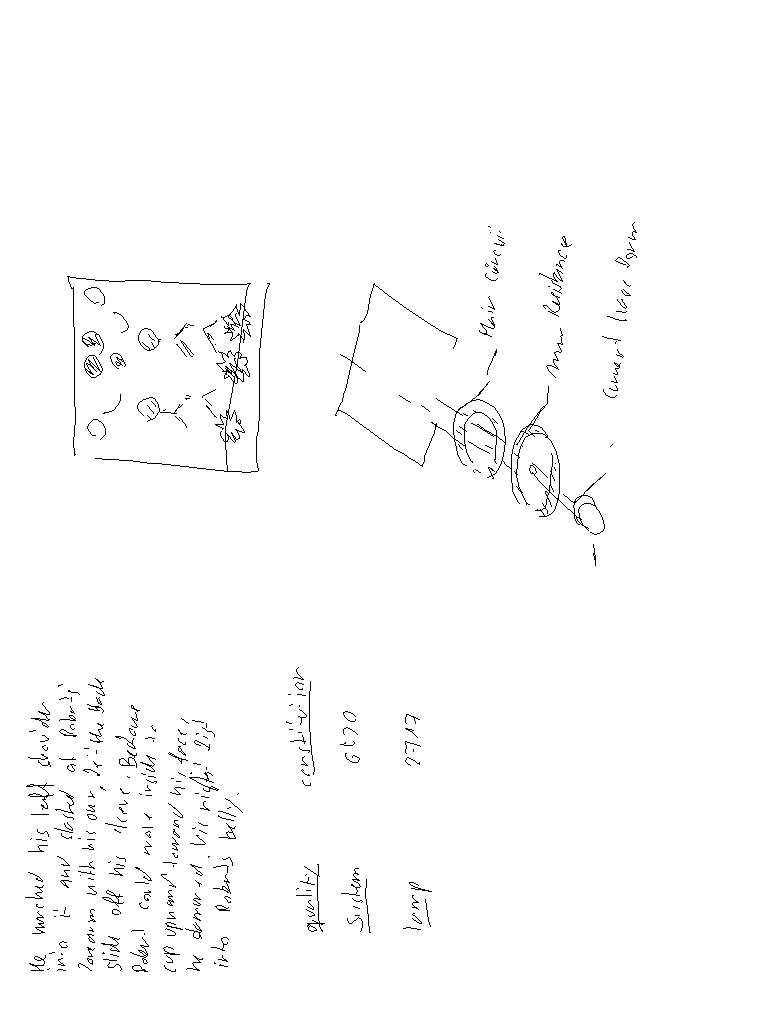 He hunched his left shoulder
into it and slashed at Robert's
forearm with his own, let the blade
slide off his sleeve. Before
Robert could move inside to
cup upward toward his face,
he hammered his right fist
into Robert's belly.
quality constitution
System 6t70
lamp 2717
Main Circuit
Resistance
Current